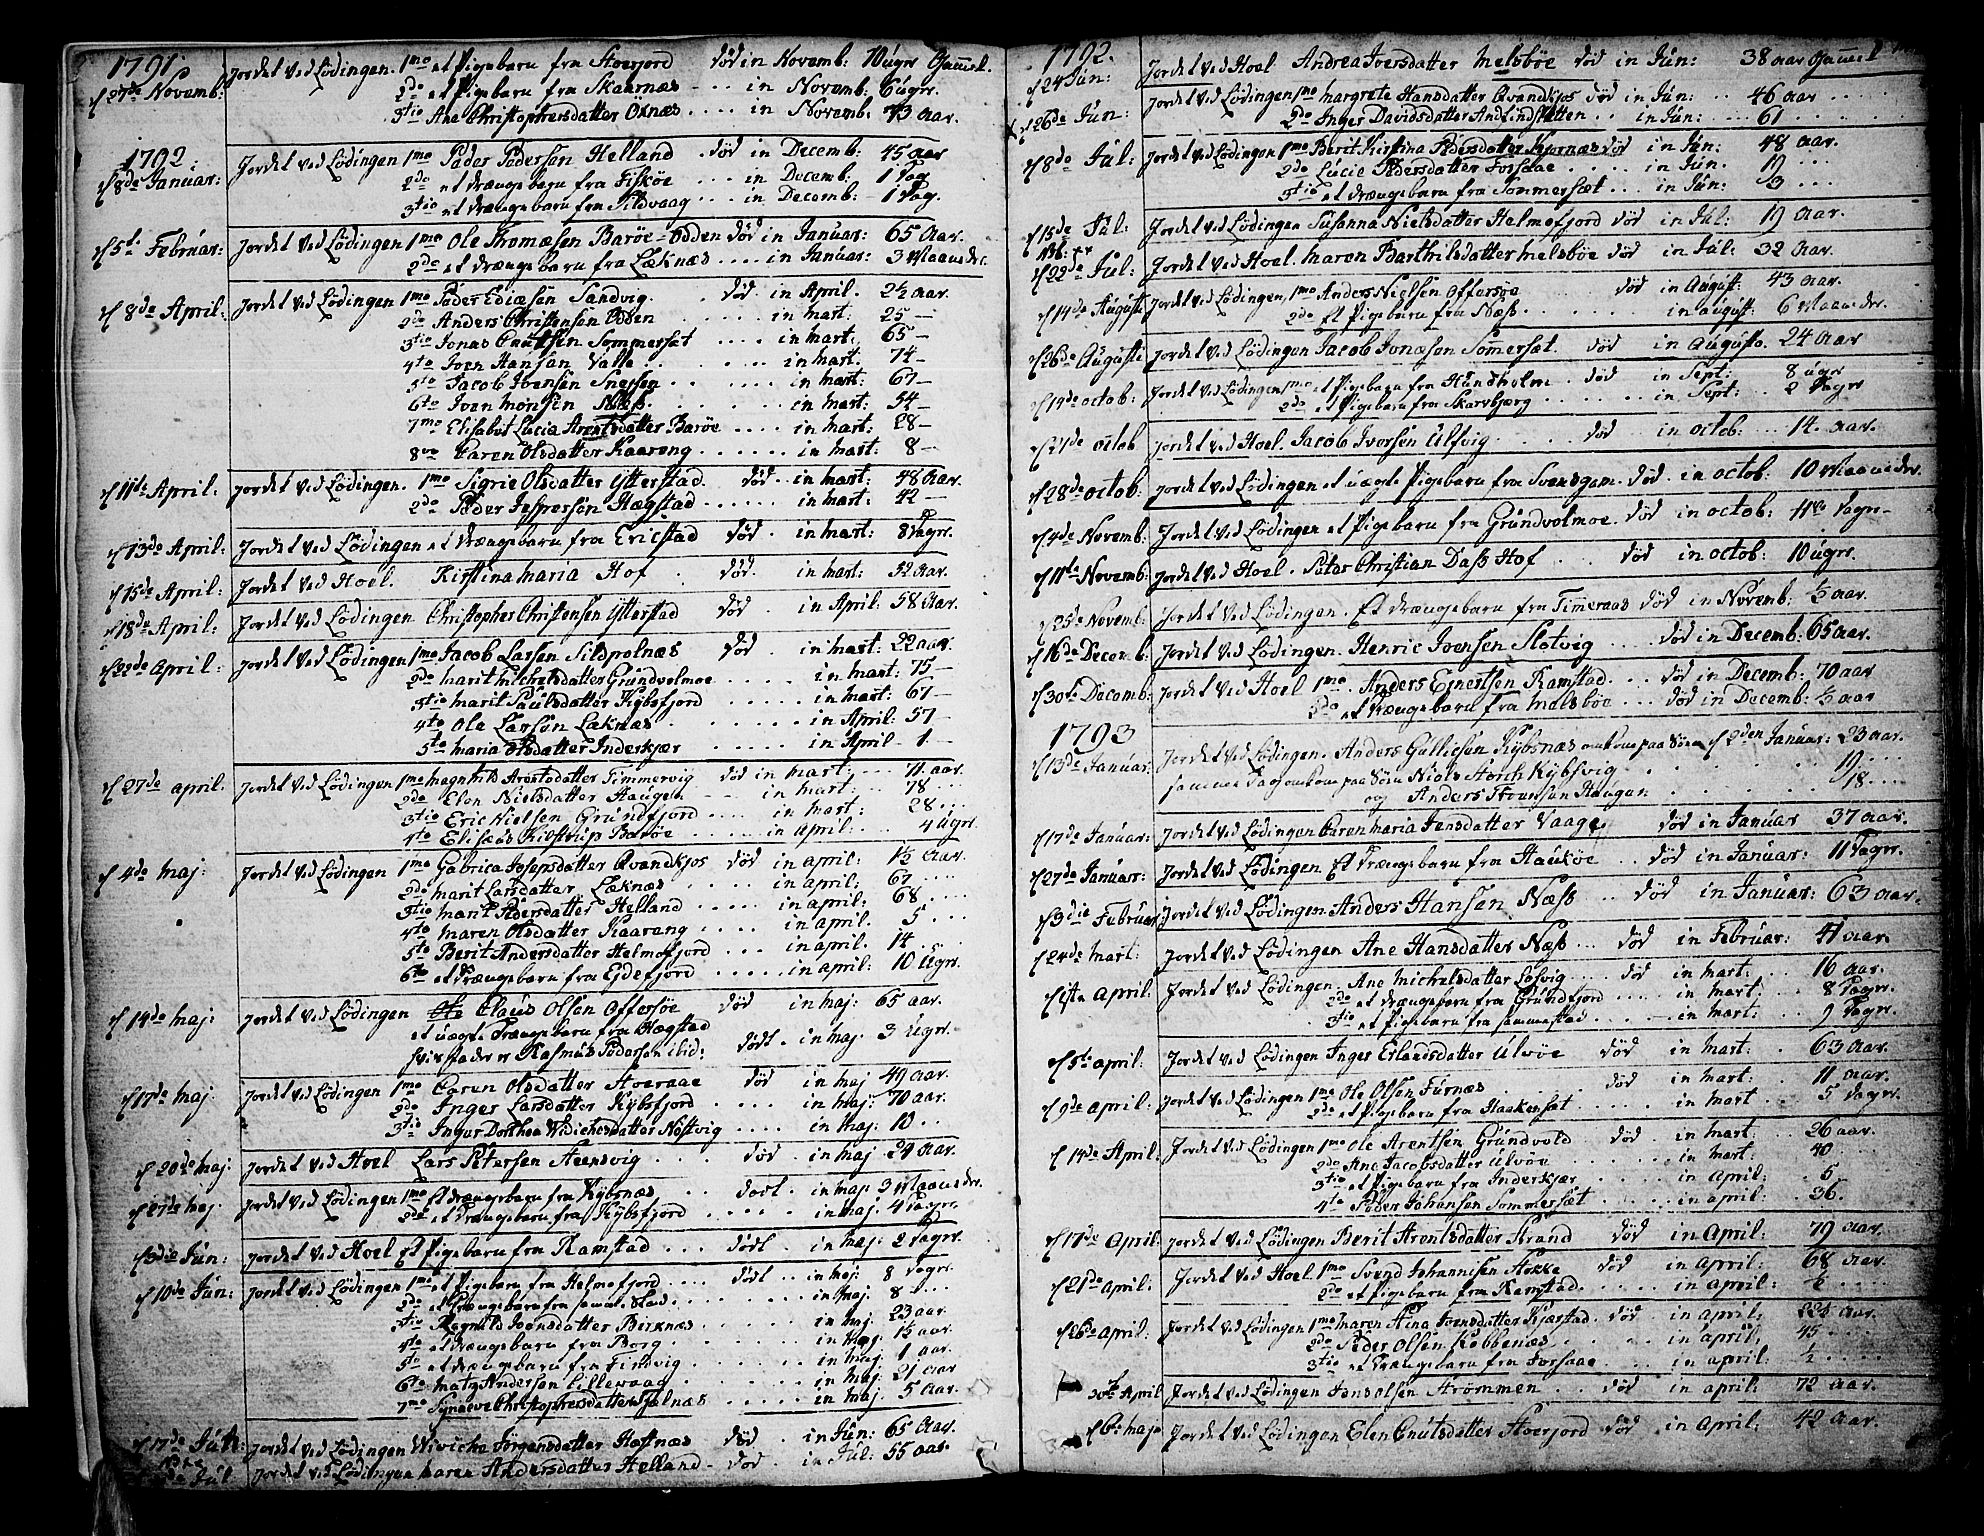 1791
d 27de Novemb: Jordet ved Lødingen. 1mo et Pigebarn fra Stoerjord død in Novemb: 10 ugr Gam̅el.
2do et Pigebarn fra Skaarnæs - .. in Novemb. 6 ugr.
3tio Ane Christophersdatter Oxnæs .... in Novemb. 73 aar.
1792.
d 8de Januar: Jordet ved Lødingen 1mo Peder Pedersen Helland død in Decemb: 45 aar
2do et drængebarn fra Fiskøe ... in Decemb. 1 Dag
3tio et drængebarn fra Sildvaag ... in Decemb: 1 Dag.
d 5te Februar: Jordet ved Lødingen 1mo Ole Thomæsen Barøe-Odden død in Januar: 65 aar.
2do et drængebarn fra Læknæs .... in Januar: 3 Maaneder
d 8de April: Jordet ved Lødingen 1mo Peder Ediæsen Sandvig. død. in April. 2½ aar.
2do Anders Christensen Odden in mart: 25 -
3tio Jonas Cnutsen Sommersæt .... in mart: 65 -
4to Iven Hansen Valle in mart: 74 -
5to Jacob Ivensen in mart: 67 -
6to Iven Monsen Næss in mart: 54 -
7mo Elisabet Lucia Arentsdatter Barøe .... in mart: 28 -
8vo Caren Olsdatter Kaarong in mart: 8 -
d 11te April: Jordet ved Lødingen. 1mo Sigrie Olsdatter Ytterstad død .. in mart: 48 aar.
2do Peder Jespersen Hægstad .... in mart: 42 -
d 13de April: Jordet ved Lødingen et drængebarn fra Ericstad død. in mart: 8 Dagr.
d 15de April: Jordet ved Hoel. Kirstina Maria Hof død. in mart: 52 aar.
d 18de April: Jordet ved Lødingen Christopher Christensen Ytterstad død. in April: 58 aar.
d 22de April: Jordet ved Lødingen 1mo Jacob Larsen Sildpolnæs død in mart: 22 aar.
2do Marit Michelsdatter Grundvolmoe ..... in mart: 75 -
3tio Marit Paulsdatter Kybsfjord ...... in mart: 67 -
4to Ole Larsen Læknæs in April: 57 -
5to Maria Olsdatter Inderkjær ..... in April - 1 -
d 27de april. Jordet ved Lødingen 1mo Magnhild Arentsdatter Timmervig død in mart: ... 71 aar.
2do Elen Nielsdatter Haugen - ... in mart: .. 78 ...
3tio Eric Nielsen Grundfjord .... in mart: .. 28 ...
4to Eliseas Kilstrup Barøe .... in april: ... 4 ugr.
d 4de Maj: Jordet ved Lødingen 1mo Gabrica Josepsdatter Qvandkjos død in april: 1½ aar.
2do Marit Larsdatter Læknæs in april: 67
3tio Marit Pedersdatter Helland in april: 68
4to Maren Olsdatter Kaarong in april. 5
5to Berit Andersdatter Helmofjord .... in april: 14
6to et drængebarn fra Ejdefjord ..... in april: 10 Ugr.
d 14de Maj: Jordet ved Lødingen Claus Olsen Offersøe død in Maj: 65 aar.
et uægte Drængebarn fra Hægstad
 Rasmus Pedersen ibid: dødt. in Maj: 3 Ugr.
d 17de Maj: Jordet ved Lødingen 1mo Caren Olsdatter Hoeraae død in Maj 49 aar.
2do Inger Larsdatter Kybsfjord .... in Maj: 70 aar.
3tio Inger Dorthea Widichesdatter Nøstvig .... in Maj: 10 ..
d 20de Maj: Jordet ved Hoel Lars Petersen Steensvig ... død. in Maj: 29 aar.
d 27de Maj: Jordet ved Lødingen 1mo Et drængebarn fra Kybsnæs .. dødt. in Maj: 3 Maaneder.
2do et drængebarn fra Kybsfjord ..... in Maj: 4 Dagr.
d 3die Jun: Jordet ved Hoel Et Pigebarn fra Ramstad ... dødt .. in Maj: 2 Dagr.
d 10de Jun: Jordet ved Lødingen 1mo et Pigebarn fra Helmofjord .... dødt .. in Maj: 8 Dagr.
2do et Drængebarn fra samme Stad. ...... in Maj: 8 ....
3tio Ragnild Ivensdatter Birknæs ....... in Maj: 23 aar
4to et drængebarn fra Borg in Maj: 1½ aar.
5to et drængebarn fra Findvig ..... in Maj: 1 aar.
6to Matz Andersen Lillevaag ..... in Maj: 21 aar
7mo Synneve Christophersdatter Fjelnæs .... in Maj. 5 aar.
d 17de Jun: Jordet ved Lødingen Wivicha Jørgensdatter Hofnæs død. in Jun: 65 aar.
Jul Jordet ved Lødingen Maren Andersdatter Helland - død. in Jul: 55 aar.
1792.
d 24 Jun: Jordet ved Hoel Andrea Iversdatter Melsbøe død in Jun: 38 aar Gam̅el
d 26de Jun: Jordet ved Lødingen 1mo Margrete Hansdatter Qvandkjos død in Jun: .. 46 aar
2do Inger Davidsdatter .. in Jun: ... 61 ...
d 8de Jul: Jordet ved Lødingen 1mo Berit Kirstina Pedersdatter Kjornæs død in Jun: 48 aar.
2do Lucie Pedersdatter Forsaae ..... in Jun. 19 ...
3tio et drængebarn fra Sommersæt ... in Jun: 3 ...
d 15de Jul: Jordet ved Lødingen Susanna Nielsdatter Helmofjord død in Jul: 19 aar.
d 22de Jul: Jordet ved Hoel Maren Barthilsdatter Melsbøe død in Jul: 32 aar.
d 14de Augusti Jordet ved Lødingen 1mo Anders Nielsen Offersøe død in August: 43 aar
2do Et Pigebarn fra Næss ...... in august: 6 Maaneder.
d 26de Augusti Jordet ved Lødingen Jacob Ivnæsen Sommersæt. død in Augusto. 24 aar
d 14de octob: Jordet ved Lødingen 1mo et Pigebarn fra Hundholm .. død in Sept: 8 ugr
2do et Pigebarn fra Skarvbjerg ..... in Sept: 2 Dagr
d 21de octob Jordet ved Hoel. Jacob Iversen Ulsvig .... død in octob: ... 14. aar.
d 28de octob: Jordet ved Lødingen et uægte Pigebarn fra Svensgam. død. in octob: 10 Maaneder.
d 4de Novemb: Jordet ved Lødingen et Pigebarn fra Grundvolmoe. død in octob: 11te Dagr-
d 11te Novemb: Jordet ved Hoel. Peter Christian Dass Hof .. død in octob: 10 ugr.
d 25de Novemb: Jordet ved Lødingen. Et drængebarn fra Timeraas død in Novemb: ½ aar.
d 16de Decemb: Jordet ved Lødingen. Henric Ivensen Slotvig ... død in Decemb: 65 aar.
d 30te Decemb: Jordet ved Hoel 1mo. Anders Ernertsen Ramstad ... død in Decemb: 70 aar
2do et drængebarn fra Melsbøe ... død in Decemb: ½ aar
1793
d 13de Januar: Jordet ved Lødingen. Anders Gulliesen Kybsnæs omkom paa Søen d 2den Januar: 23 aar.
samme Dag omkom paa Søen Niels Storch Kybsvig 19 ....
og Anders Thomsen Haugen 18 ....
d 17de Januar: Jordet ved Lødingen Caren Maria Jensdatter Vaage død in Januar 37 aar.
d 27de Januar: Jordet ved Lødingen Et drængebarn fra Haukøe .. død in Januar: 11 Dagr.
d 3die Februar: Jordet ved Lødingen Anders Hansen Næss .. død in Januar: 63 aar.
d 24de Mart: Jordet ved Lødingen Ane Hansdatter Næss ... død in Februar: 41 aar.
d 1te April: Jordet ved Lødingen. Ane Michelsdatter Løsvig .... død in mart. .. 16 aar.
2do et drængebarn fra Grundfjord .... in mart .. 8 Dagr.
3tio et Pigebarn fra sammestad .... in mart: .. 9 Dagr.
d 5te april: Jordet ved Lødingen Inger Erlandsdatter Ulvøe død in mart: .. 63 aar.
d 9de April: Jordet ved Lødingen 1mo Ole Olsen Furnæs død in mart: .. 11 aar.
2do et Pigebarn fra Haakersæt ..... in mart .. 5 dagr.
d 14de April: Jordet ved Lødingen 1mo Ole Arentsen Grundvold død. in mart: .. 26 aar.
2do Ane Jacobsdatter Ulvøe in mart: .. 40
3tio et Pigebarn fra Inderkjær ..... in april: .. 5
4to Peder Johansen Sommersæt ..... in april: .. 36.
d 17de April: Jordet ved Lødingen Berit Arentsdatter Strand død in April: 79 aar.
d 21de April: Jordet ved Hoel 1mo Svend Johannisen Stokke død in april: 68 aar.
2do et Pigebarn fra Ramstad ..... in april: 6
d 26de april: Jordet ved Lødingen 1mo Maren Ivensdatter Kjærstad. død .. in april: 22½ aar.
2do Peder Olsen Kobbenæs in april: 45 ....
3tio et drængebarn fra Forsaae ..... in april: ½ ....
April Jordet ved Lødingen Jens Olsen Strømmen .. død .. in april: 72 aar.
d 6te Maj Jordet ved Lødingen Elen Cnutsdatter Stoerjord død .. in April: 42 aar.